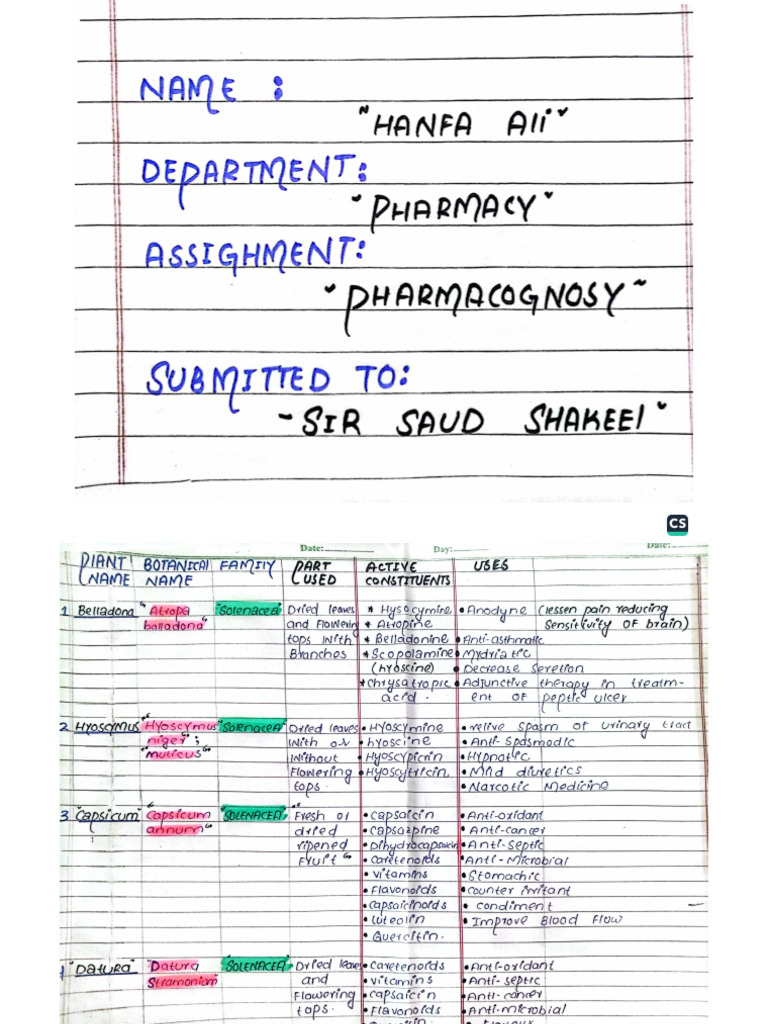 NAME :
"HANFA Ali"
DEPARTMENT:
"PHARMACY"
ASSIGHMENT:
"PHARMACOGNOSY"
SUBMITTED TO:
- SIR SAUD SHAKEEl"
CS
Date: Day: Date:
PlANT NAME BOTANICAl NAME FAMILY PART USED ACTIVE CONSTITUENTS USES
1 Belladona "Atropa balladona" "Solenacea" Dried leaves and flowering tops with Branches
* Hysocymine
* Atropine
* Belladonine
* Scopolamine (hyoscine)
* Chrysatropic acid.
• Anodyne (lessen pain reducing sensitivity of brain)
• Anti-asthmatic
• Mydriatic
• Decrease seretion
• Adjunctive therapy in treatment of peptic ulcer
2 Hyoscymus "Hyoscymus niger"; "muticus" "Solenacea" Dried leaves with or without flowering tops.
• Hyoscymine
• hyoscine
• Hyoscypicrin
• Hyoscytricin
• relive spasm of urinary tract
• Anti-Spasmodic
• Hypnotic
• Mild diuretics
• Narcotic Medicine
3 "Capsicum" "Capsicum annum" "SOLENACEA" "Fresh or dried ripened fruit"
• capsaicin
• capsazpine
• Dihydrocapsaicin
• caretenoids
• vitamins
• flavonoids
• capsaicinoids
• luteolin
• Quercitin.
• Anti-oxidant
• Anti-cancer
• Anti-septic
• Anti-Microbial
• Stomachic
• counter irritant
• condiment
• Improve Blood Flow
"Datura" "Datura Stramonium" "SOLENACEA" • Dried leaves and flowering tops.
• Caretenoids
• vitamins
• capsaicin
• Flavonoids
• Anti-oxidant
• Anti-septic
• Anti-cancer
• Anti-microbial